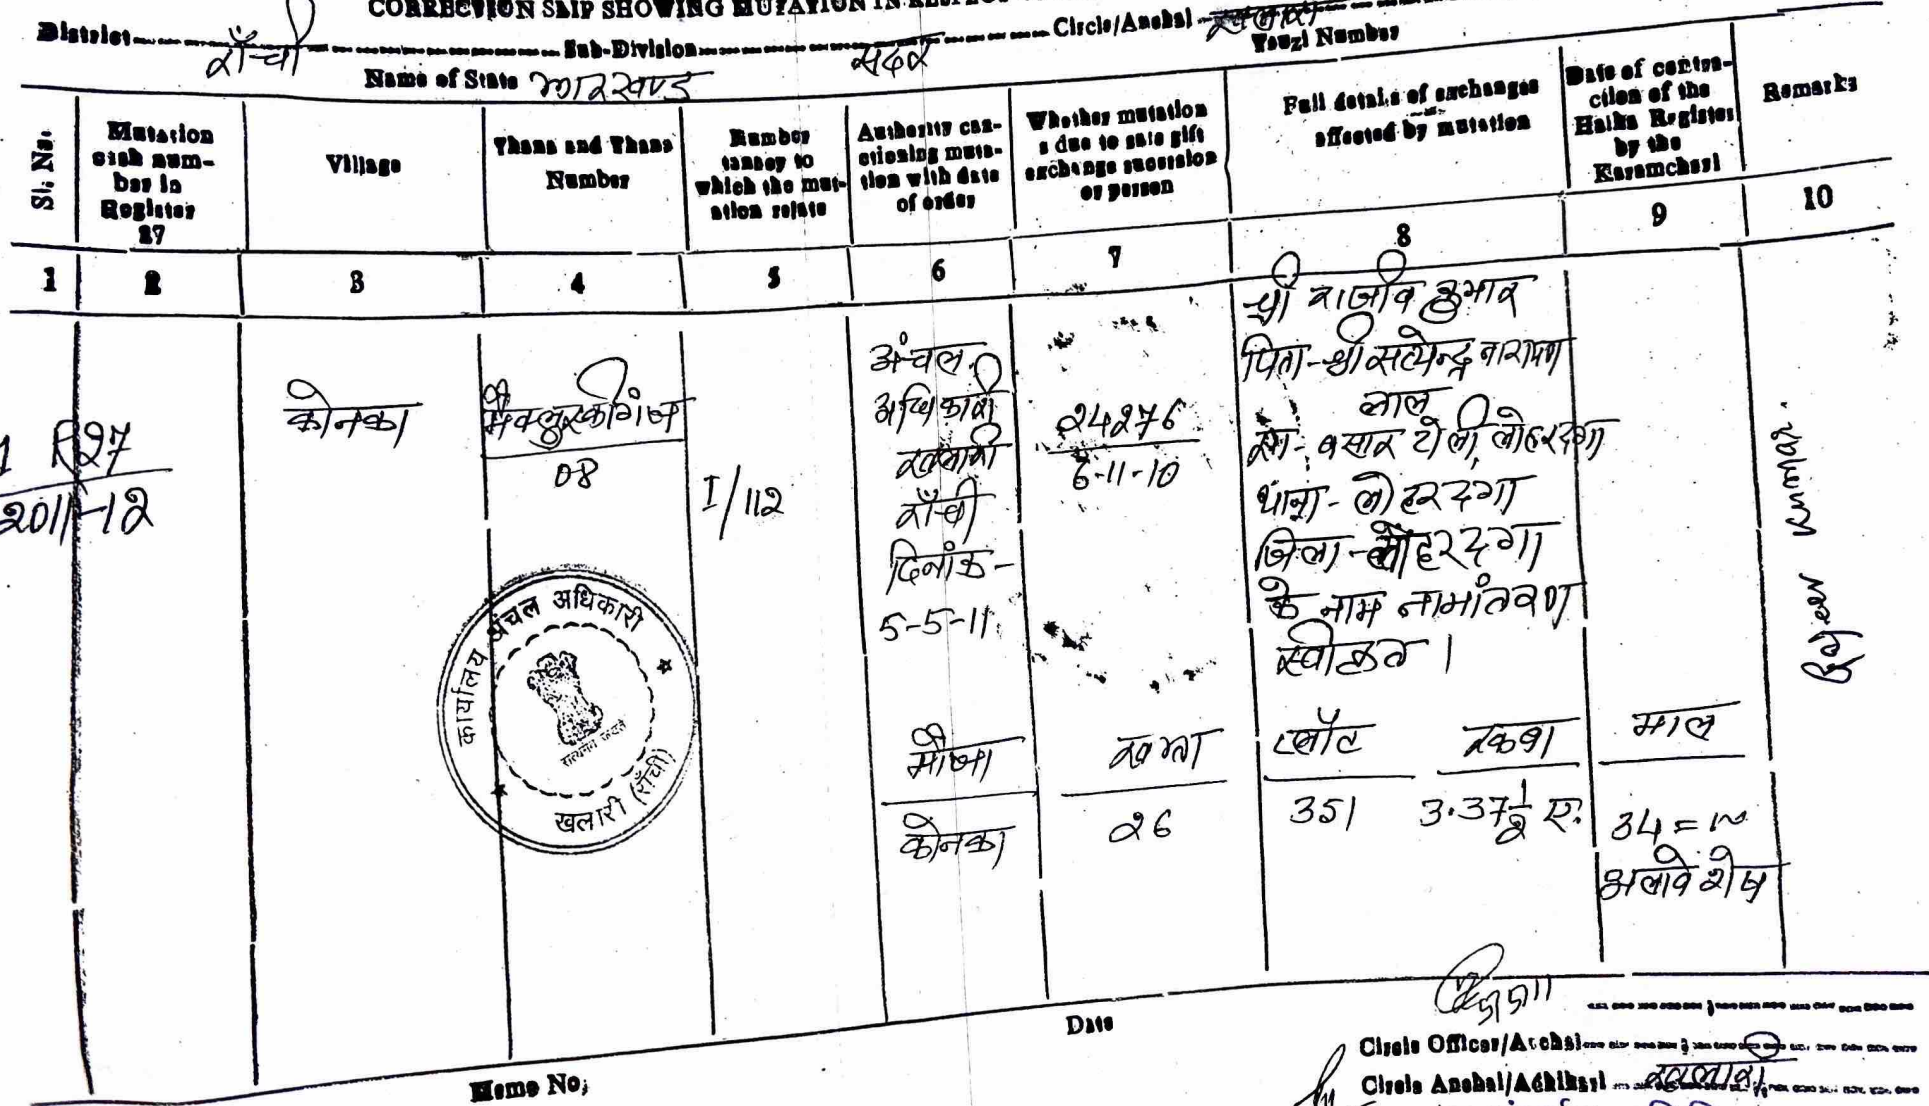 CORRECTION SLIP SHOWING MUTATION IN
District राँची Sub-Division सदर Circle/Anchal खलारी
Name of State झारखण्ड Touzi Number
Sl. No.
Mutation
case num-
ber in
Register
27
Village
Thana and Thana
Number
Number
tanncy to
which the mut-
ation relate
Authority can-
ctioning muta-
tion with date
of order
Whether mutation
s due to sale gift
exchange succession
or person
Full details of exchanges
affected by mutation
Date of contra-
ction of the
Halka Register
by the
Karamchari
Remarks
1 2 3 4 5 6 7 8 9 10
R27
2011-12
कोनका
मैक्लुस्कीगंज
08
I/112
अंचल
अधिकारी
खलारी
राँची
दिनांक-
5-5-11
24276
6-11-10
श्री राजीव कुमार
पिता-श्री सत्येन्द्र नारायण
लाल
सा- बसार टोली, लोहरदगा
थाना- लोहरदगा
जिला-लोहरदगा
के नाम नामांतरण
स्वीकृत।
Rajeev Kumar.
मौजा खाता प्लॉट रकबा माल
कोनका 26 351 3.37½ ए.
अलावे शेष
कार्यालय अंचल अधिकारी
सत्यमेव जयते
खलारी (राँची)
Date
Circle Officer/Anchal
Memo No;
Circle Anchal/Adhikari खलारी